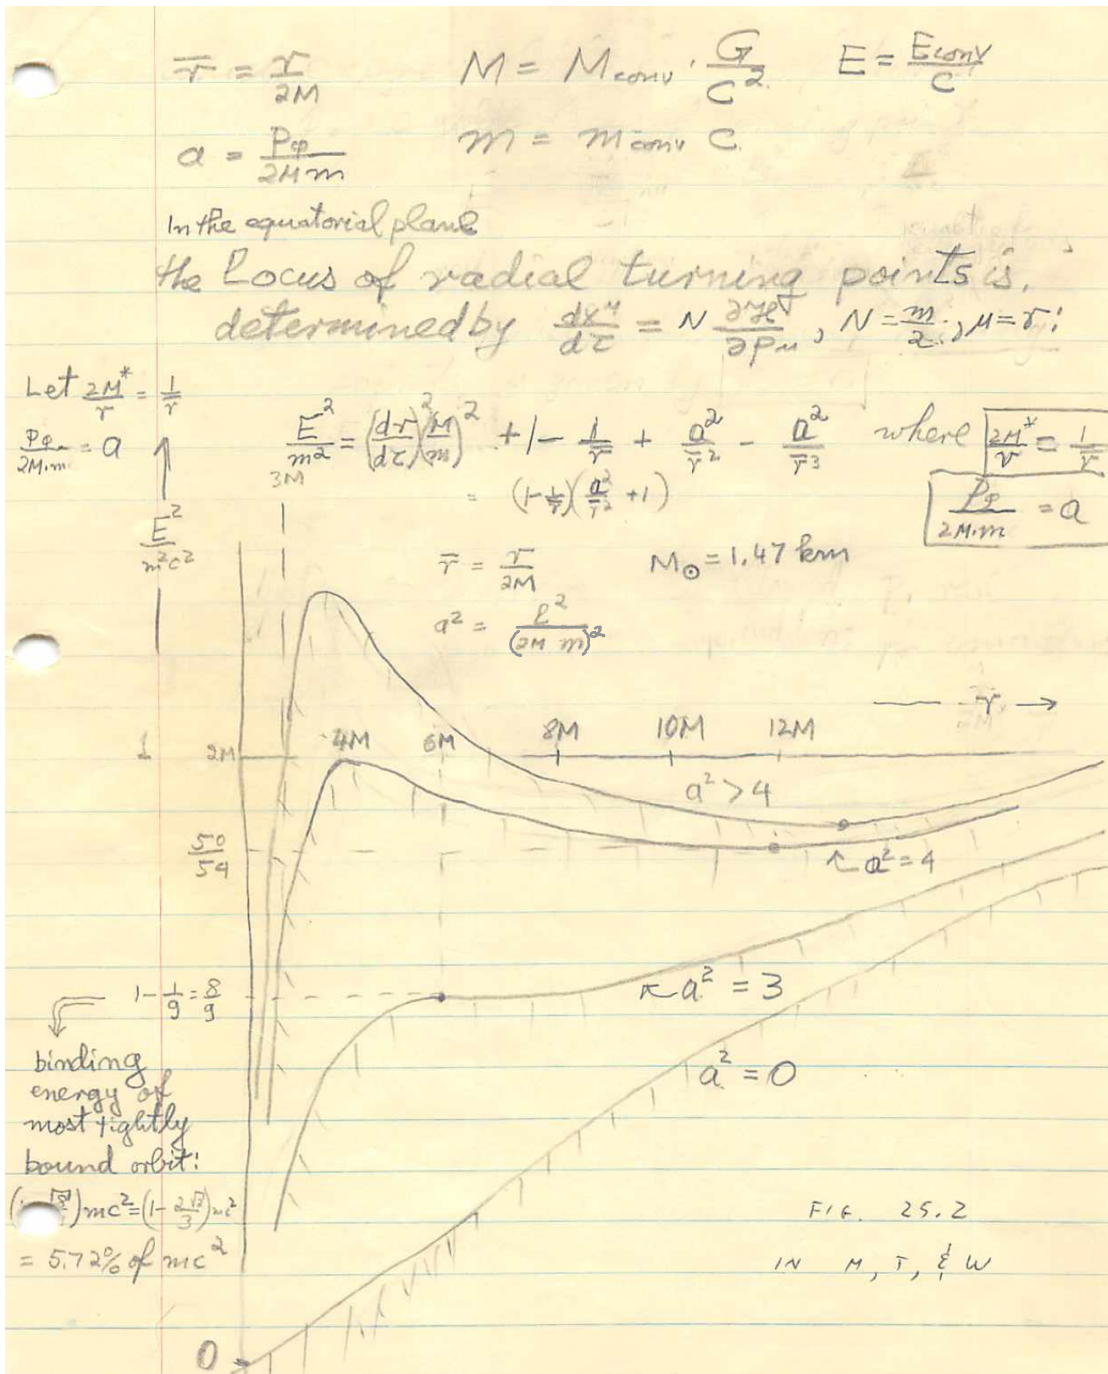 r̅ = r/2M    M = M_conv · G/C²    E = E_conv/C
a = P_φ/2Mm    m = m_conv C
In the equatorial plane
the Locus of radial turning points is
determined by dx^μ/dτ = N ∂ℋ/∂p_μ, N = m/2, μ = r:
Let 2M*/r = 1/r̅
P_φ/2M·m = a
E²/m² = (dr/dτ)²(M/m)² + 1 − 1/r̅ + a²/r̅² − a²/r̅³    where 2M*/r = 1/r̅
= (1 − 1/r̅)(a²/r̅² + 1)
P_φ/2M·m = a
3M
E²/m²c²
r̅ = r/2M    M_⊙ = 1.47 km
a² = ℓ²/(2M m)²
r →
1    2M    4M    6M    8M    10M    12M
a² > 4
50/54
a² = 4
1 − 1/9 = 8/9
a² = 3
binding
energy of
most tightly
bound orbit:
a² = 0
)mc² = (1 − 2√2/3)mc²
= 5.72% of mc²
FIG. 25.2
IN M, T, & W
0